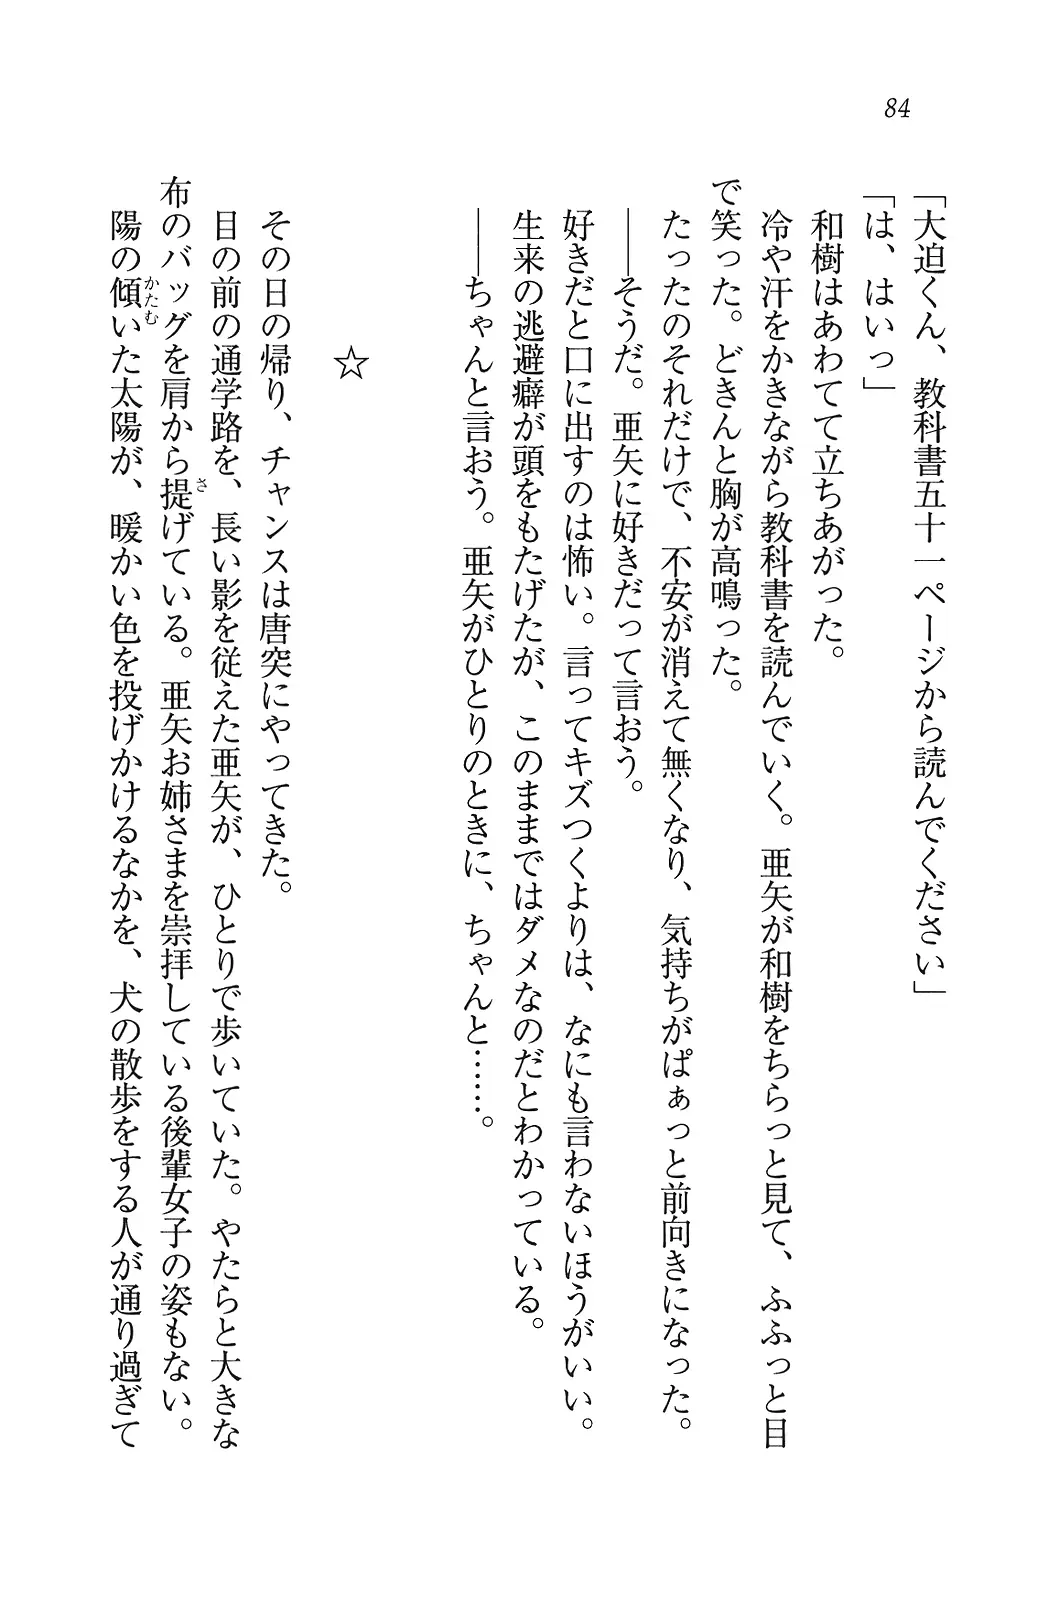 84
「大迫くん、教科書五十一ページから読んでください」
「は、はいっ」
和樹はあわてて立ちあがった。
冷や汗をかきながら教科書を読んでいく。亜矢が和樹をちらっと見て、ふふっと目
で笑った。どきんと胸が高鳴った。
たったのそれだけで、不安が消えて無くなり、気持ちがぱぁっと前向きになった。
――そうだ。亜矢に好きだって言おう。
好きだと口に出すのは怖い。言ってキズつくよりは、なにも言わないほうがいい。
生来の逃避癖が頭をもたげたが、このままではダメなのだとわかっている。
――ちゃんと言おう。亜矢がひとりのときに、ちゃんと……。
☆
その日の帰り、チャンスは唐突にやってきた。
目の前の通学路を、長い影を従えた亜矢が、ひとりで歩いていた。やたらと大きな
布のバッグを肩から提げている。亜矢お姉さまを崇拝している後輩女子の姿もない。
陽の傾いた太陽が、暖かい色を投げかけるなかを、犬の散歩をする人が通り過ぎて